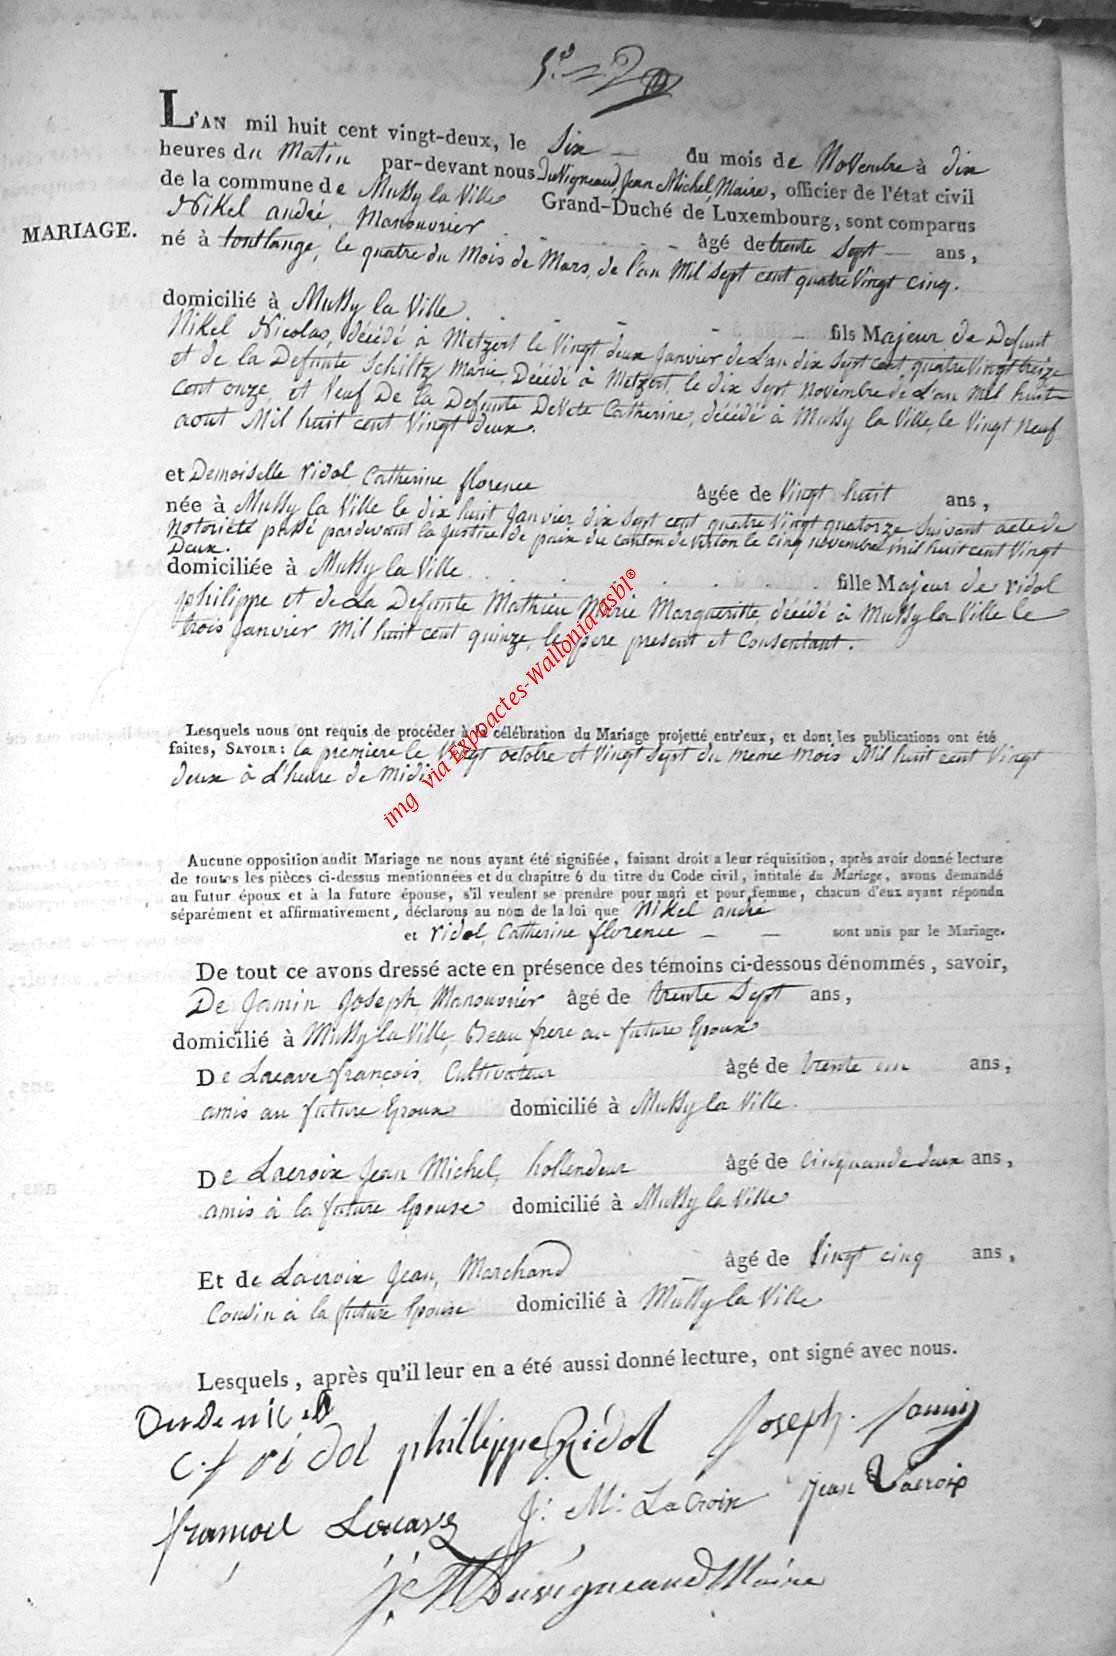 L'AN mil huit cent vingt-deux, le Six du mois de Novembre à dix
heures du Matin par-devant nous Duvigneaud, Jean Michel, Maire, officier de l'état civil
de la commune de Mussy la Ville Grand-Duché de Luxembourg, sont comparus
MARIAGE.
Nikel andré, Manouvrier âgé de trente Sept ans,
né à tontlange, le quatre du Mois de Mars, de l'an Mil Sept cent quatre Vingt cinq.
domicilié à Mussy la Ville.
fils Majeur de Defunt
Nikel Nicolas, décédé à Metzert le Vingt deux Janvier de L'an dix Sept cent quatre Vingt treize
et de la Defunte Schiltz Marie, Décédé à Metzert, le dix Sept Novembre de L'an Mil huit
cent onze, et Veuf De la Defunte DeVete Catherine, décédé à Mussy la Ville, le Vingt Neuf
aout Mil huit cent Vingt deux.
et Demoiselle ridol Catherine florence âgée de Vingt huit ans,
née à Mussy la Ville le dix huit Janvier dix Sept cent quatre Vingt quatorze Suivant acte de
Notorieté passé pardevant la justice de paix du canton de virton le cinq novembre mil huit cent Vingt
Deux.
domiciliée à Mussy la Ville fille Majeur de ridol
philippe et de La Defunte Mathieu Marie Margueritte, décédé à Mussy la Ville le
trois Janvier Mil huit cent quinze, le pere present et Consentant.
Lesquels nous ont requis de procéder à la célébration du Mariage projetté entr'eux, et dont les publications ont été
faites, SAVOIR : la premiere le Vingt octobre et Vingt Sept du meme mois Mil huit cent Vingt
deux à L'heure de midi
img via Expoactes-Wallonia asbl®
Aucune opposition audit Mariage ne nous ayant été signifiée, faisant droit a leur réquisition, après avoir donné lecture
de toutes les pièces ci-dessus mentionnées et du chapitre 6 du titre du Code civil, intitulé du Mariage, avons demandé
au futur époux et à la future épouse, s'il veulent se prendre pour mari et pour femme, chacun d'eux ayant répondu
séparément et affirmativement, déclarons au nom de la loi que Nikel andré
et ridol, Catherine florence sont unis par le Mariage.
De tout ce avons dressé acte en présence des témoins ci-dessous dénommés, savoir,
De Jamin Joseph, Manouvrier âgé de trente Sept ans,
domicilié à Mussy la Ville, Beau frere au future Epoux
De Lucave françois, Cultivateur âgé de trente un ans,
amis au future Epoux domicilié à Mussy la Ville.
De Lacroix Jean Michel, hollendeur âgé de cinquande deux ans,
amis à la future Epouse domicilié à Mussy la Ville
Et de Lacroix Jean, Marchand âgé de Vingt cinq ans,
Cousin à la future Epouse domicilié à Mussy la Ville
Lesquels, après qu'il leur en a été aussi donné lecture, ont signé avec nous.
c.f ridol phillippe Ridol Joseph. Jamin
françoie Loucave J: M: LaCroix Jean Lacroix
J. M Duvigneaud Maire